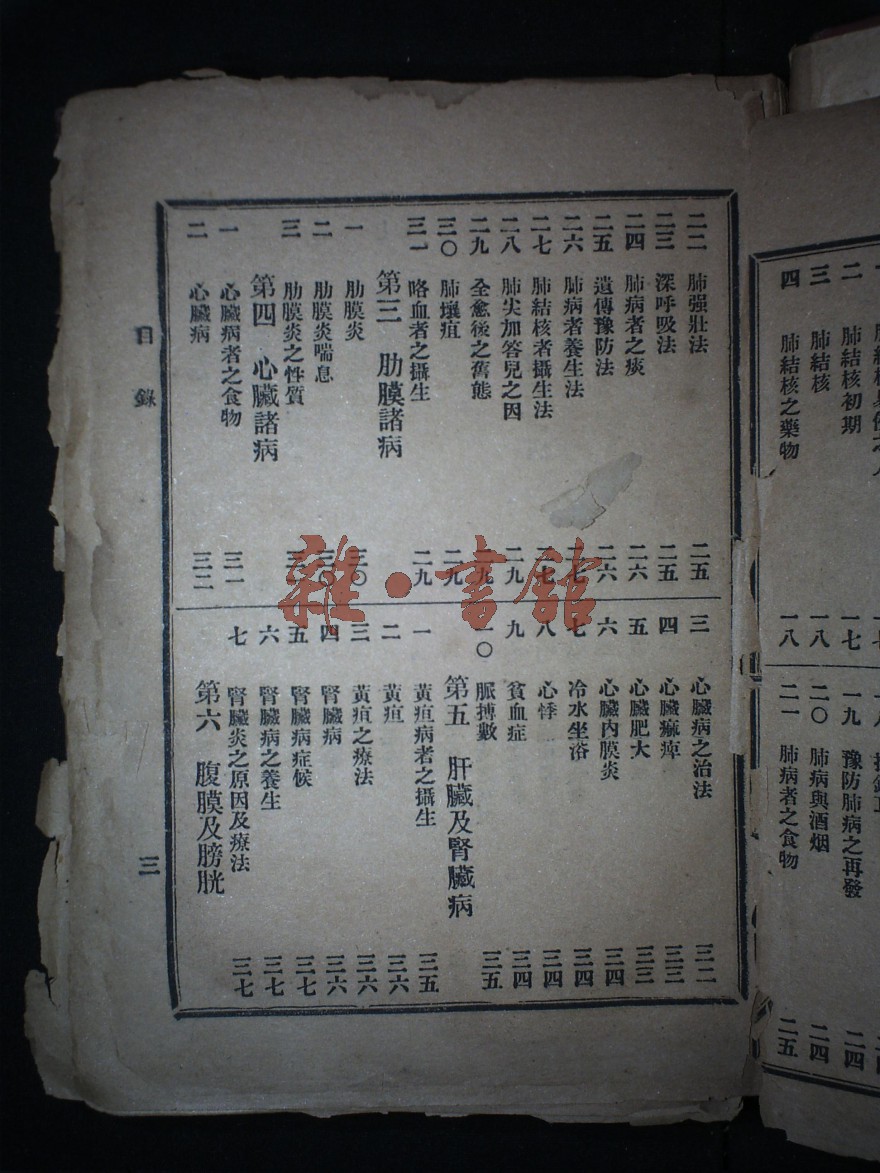 四 肺結核之藥物 一八
三 肺結核 一八
二 肺結核初期 一七
二一 肺病者之食物 二五
二〇 肺病與酒烟 二四
一九 豫防肺病之再發 二四
二二 肺强壯法 二五
二三 深呼吸法 二五
二四 肺病者之痰 二六
二五 遺傳豫防法 二六
二六 肺病者養生法 二七
二七 肺結核者攝生法 二七
二八 肺尖加答兒之因 二九
二九 全愈後之舊態 二九
三〇 肺壞疽 二九
三一 咯血者之攝生 二九
第三 肋膜諸病
一 肋膜炎 三〇
二 肋膜炎喘息 三〇
三 肋膜炎之性質
第四 心臟諸病
一 心臟病者之食物 三一
二 心臟病 三二
三 心臟病之治法 三二
四 心臟痲痺 三三
五 心臟肥大 三三
六 心臟內膜炎 三四
七 冷水坐浴 三四
八 心悸 三四
九 貧血症 三四
一〇 脈搏數 三五
第五 肝臟及腎臟病
一 黃疸病者之攝生 三五
二 黃疸 三六
三 黃疸之療法 三六
四 腎臟病 三六
五 腎臟病症候 三七
六 腎臟病之養生 三七
七 腎臟炎之原因及療法 三七
第六 腹膜及膀胱
目錄 三
雜·書館